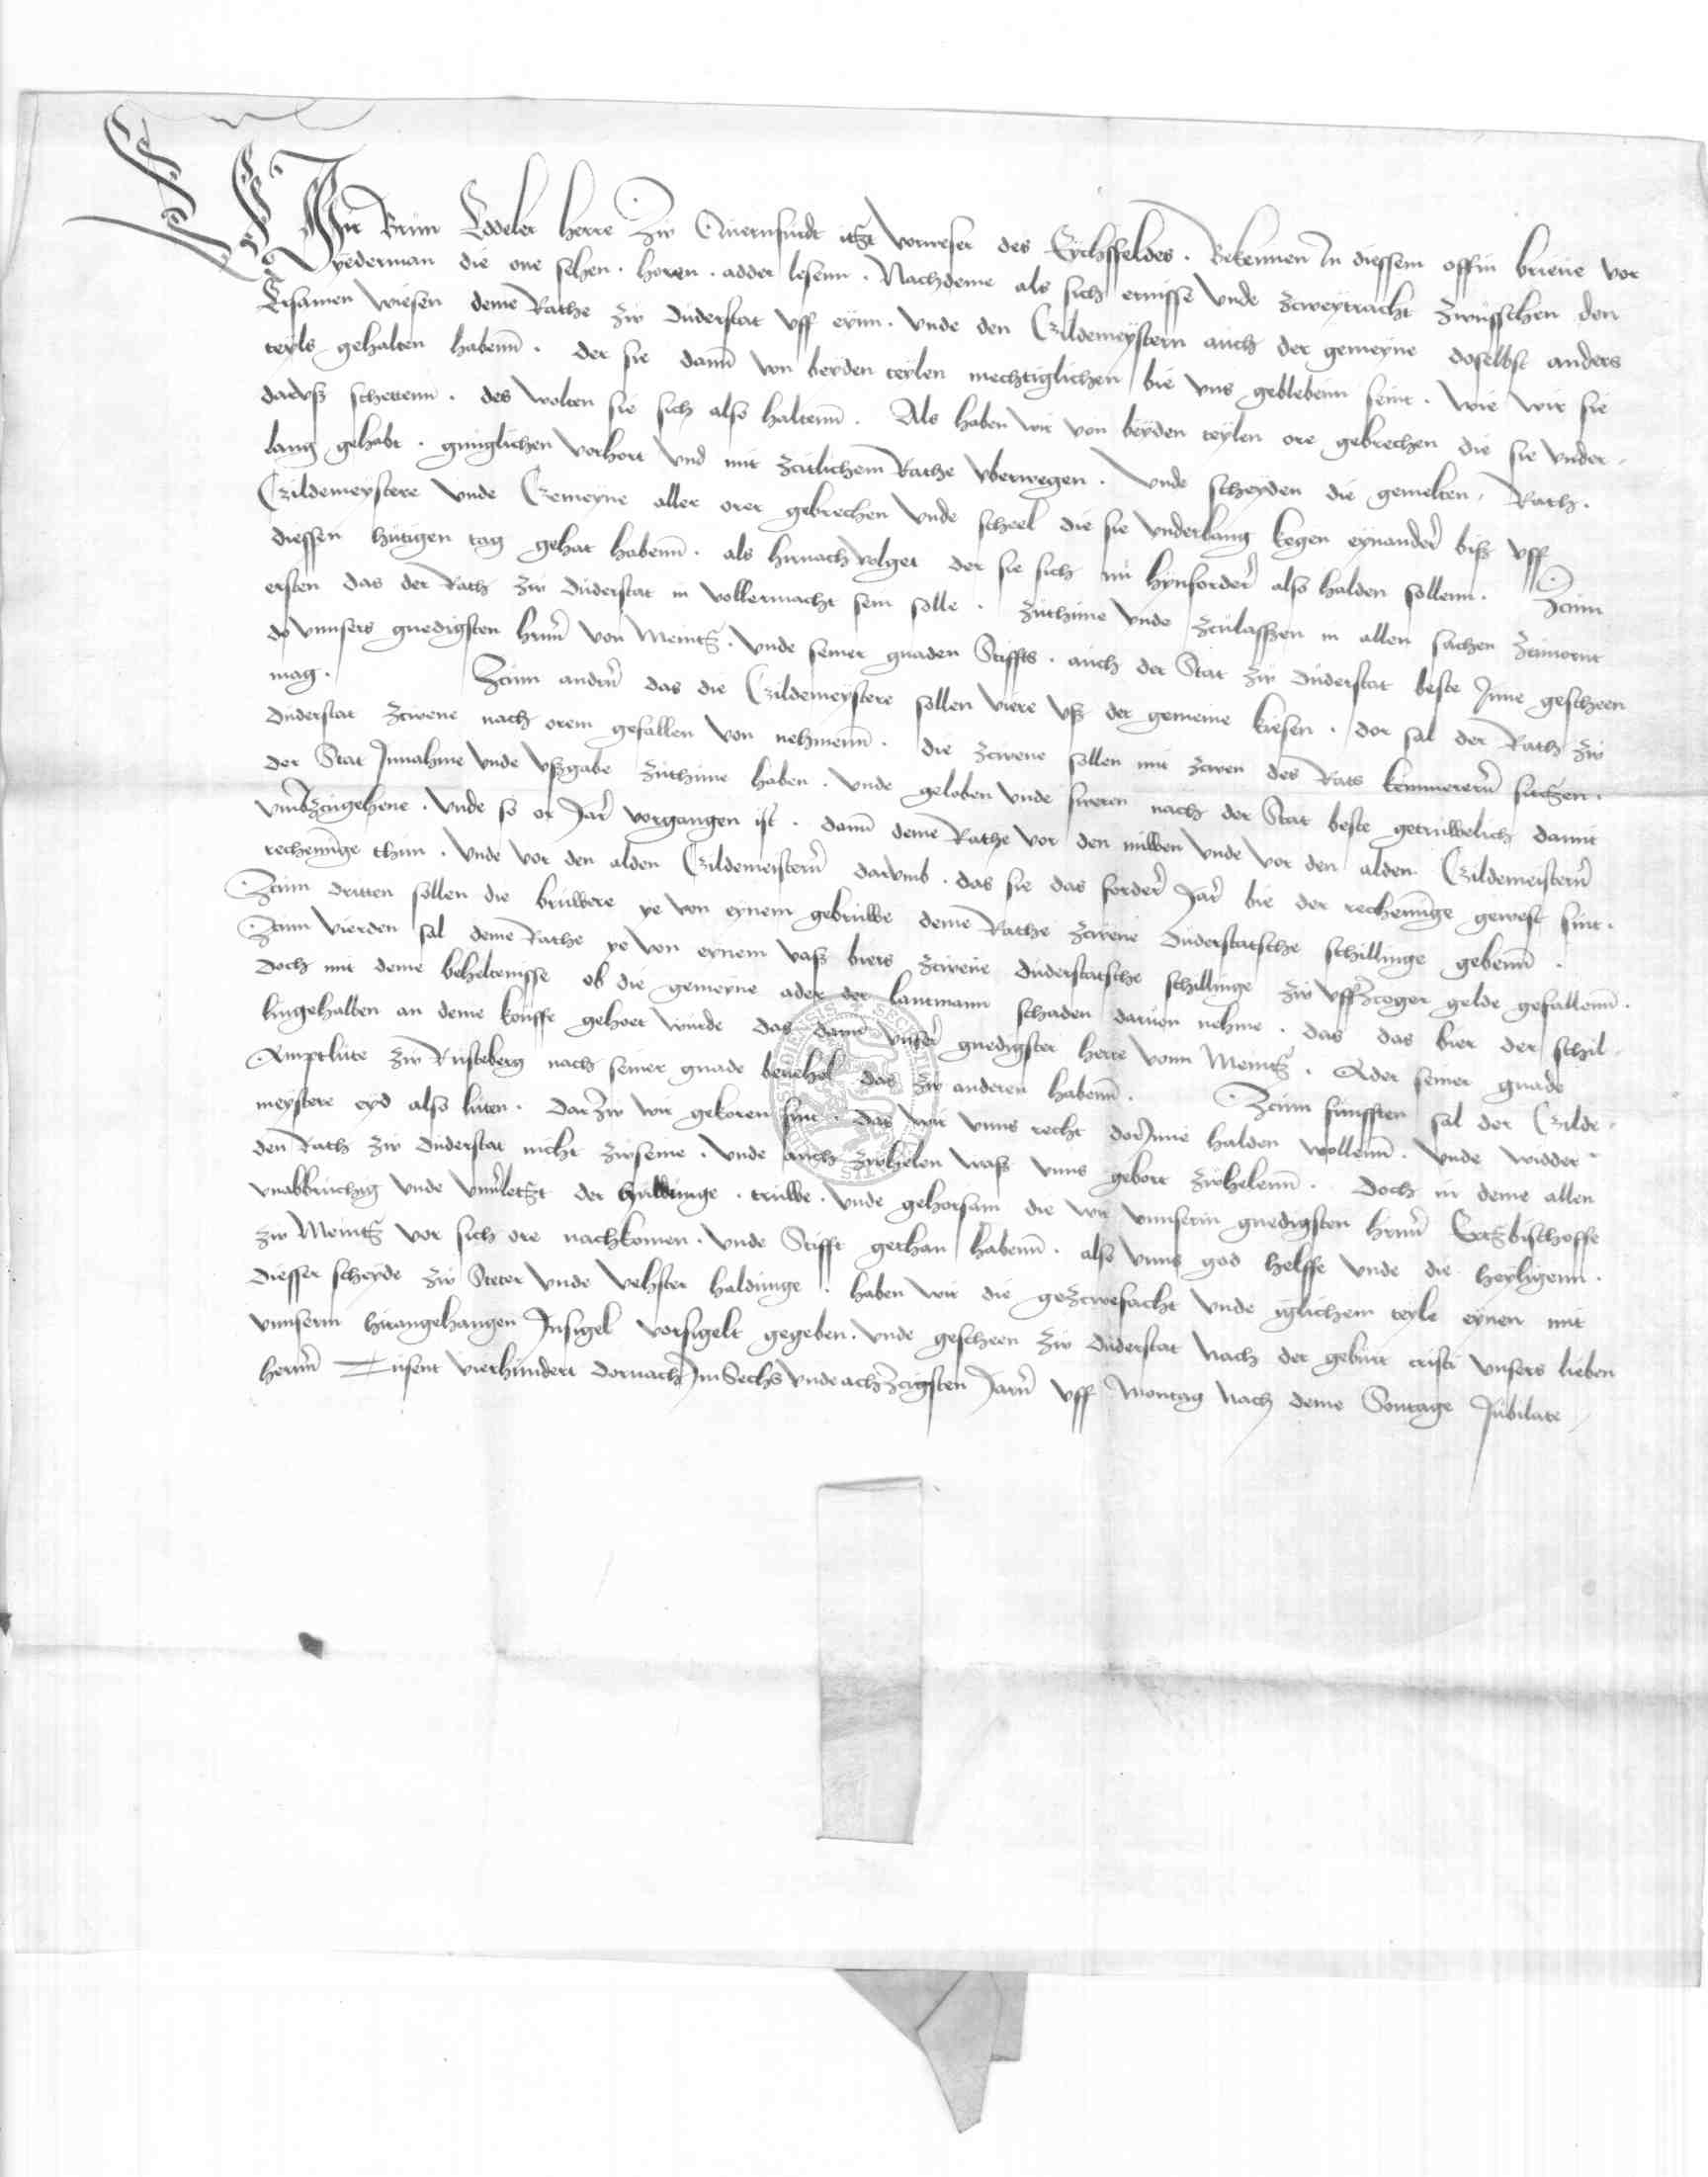 Wir Brun Eddeler herre Zw Quernfurdt itzt vorweser des Eychssfeldes . Bekennen In diessem offin brieue vor
yederman die one sehen . horen . adder lesenn . Nachdeme als sich ernisse vnde zcweytracht zwusschen den
Ersamen wiesen deme Rathe zw Duderstat vff eynn . vnde den Gildemeystern auch der gemeyne doselbst anders
teyls gehalten habenn . der sie dann von beyden teylen mechtiglichen bie vns geblebenn seint . wie wir sie
darvß schettenn . des wolten sie sich also haltenn . Als haben wir von beyden teylen ore gebrechen die sie vnder
lang gehabt . gnuglichen vorhort vnd mit zcitlichem Rathe vberwegen . vnde scheyden die gemelten Rath .
Gildemeystere vnde Gemeyne aller orer gebrechen vnde scheel die sie vnderlang kegen eynander biß vff
diessen hutigen tag gehat habenn . als hirnach volget der sie sich nu hynforder also halden sollenn . Zcum
ersten das der Rath zw Duderstat in vollermacht sein solle . zuthune vnde zculassen in allen sachen
do vnnsers gnedigsten hern von Meintz . vnde seiner gnaden Stiffts . auch der Stat zw Duderstat beste Inne gescheen
mag . Zcum andern das die Gildemeystere sollen viere vß der gemeine kiesen . dor sal der Rath zw
Duderstat zcwene nach orem gefallen von nehmenn . die zcwene sollen mit zcwen des Rats kemmerern sitzen .
der Stat Innahme vnde vßgabe zuthune haben . vnde geloben vnde sweren nach der Stat beste getruwelich damit
vmbzcugehene . vnde so or Jar vorgangen ist . dann deme Rathe vor den nuwen vnde vor den alden Gildemeistern
rechenunge thun . vnde vor den alden Gildemeistern darvmb . das sie das forder Jar bie der rechenunge gewest sint .
Zcum dritten sollen die bruwere ye von eynem gebruwe deme Rathe zcwene Duderstatsche schillinge gebenn .
Zcum vierden sal deme Rathe ye von eynem vaß biers zcwene duderstatsche schillinge zw vffzcoger gelde gefallenn .
Doch mit deme beheltenisse ob die gemeyne ader der lantmann schaden daruon nehme . das das bier der schil
lingehalben an deme kouffe gehoet wurde das dann vnser gnedigster herre vonn Meintz . Ader seiner gnade
Amptlute zw Rusteberg nach seiner gnade beuehel das zw anderen habenn . Zcum funfften sal der Gilde
meystere eyd also luten . Darzw wir gekoren sint . das wir vnns recht dorInne halden wollenn . vnde widder
den Rath zw Duderstat nicht zwseine . vnde auch zwhelen waß vnns gebort zwhelenn . Doch in deme allen
vnabbruchig vnde vnverletzt der huldunge . truwe . vnde gehorsam die wir vnnserin gnedigsten hern Ertzbischoffe
zw Meintz vor sich ore nachkomen . vnde Stifft gethan habenn . also vnns god helffe vnde die heyligenn .
Diesser scheyde zw Steter vnde vehster haldunge . haben wir die gezcwefacht vnde iglichem teyle eynen mit
vnnserm hirangehangen Insigel vorsigelt gegeben . vnde gescheen zw Duderstat Nach der geburt cristi vnsers lieben
hern Tusent vierhundert Dornach Im Sechs vnde achzcigsten Jarn vff Montag Nach deme Sontage Jubilate